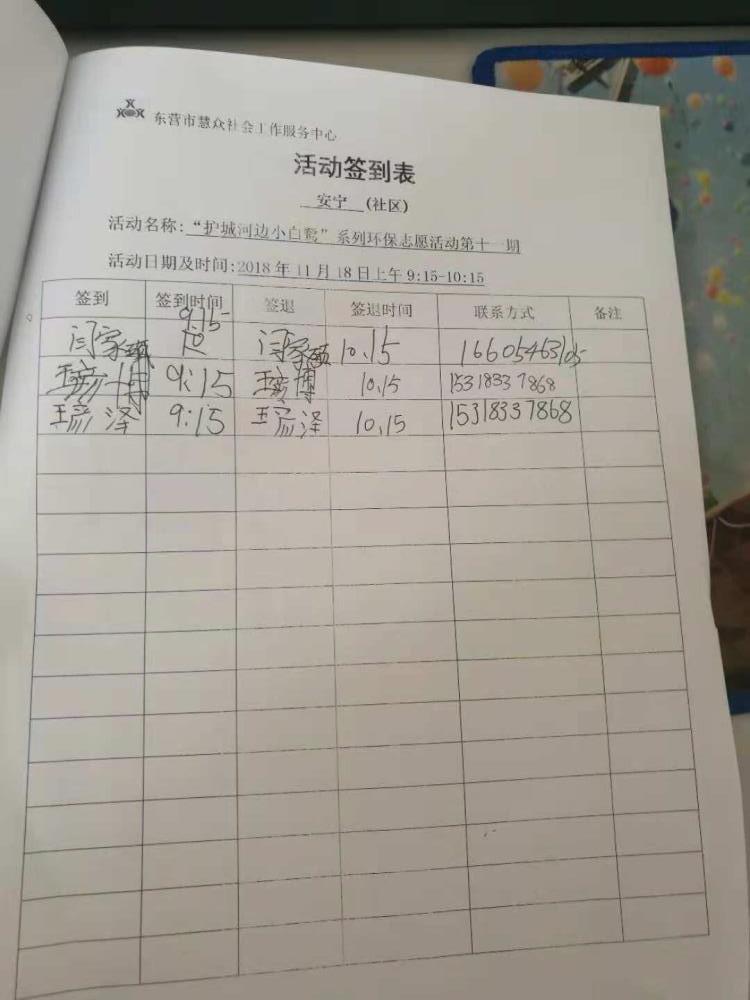 东营市慧众社会工作服务中心
活动签到表
安宁 (社区)
活动名称:“护城河边小白鹭”系列环保志愿活动第十一期
活动日期及时间:2018年11月18日上午9:15-10:15
签到 签到时间 签退 签退时间 联系方式 备注
闫家 9:15 闫家 10.15 16605463105
王彦博 9:15 王彦博 10.15 15318337868
王彦泽 9:15 王彦泽 10.15 15318337868